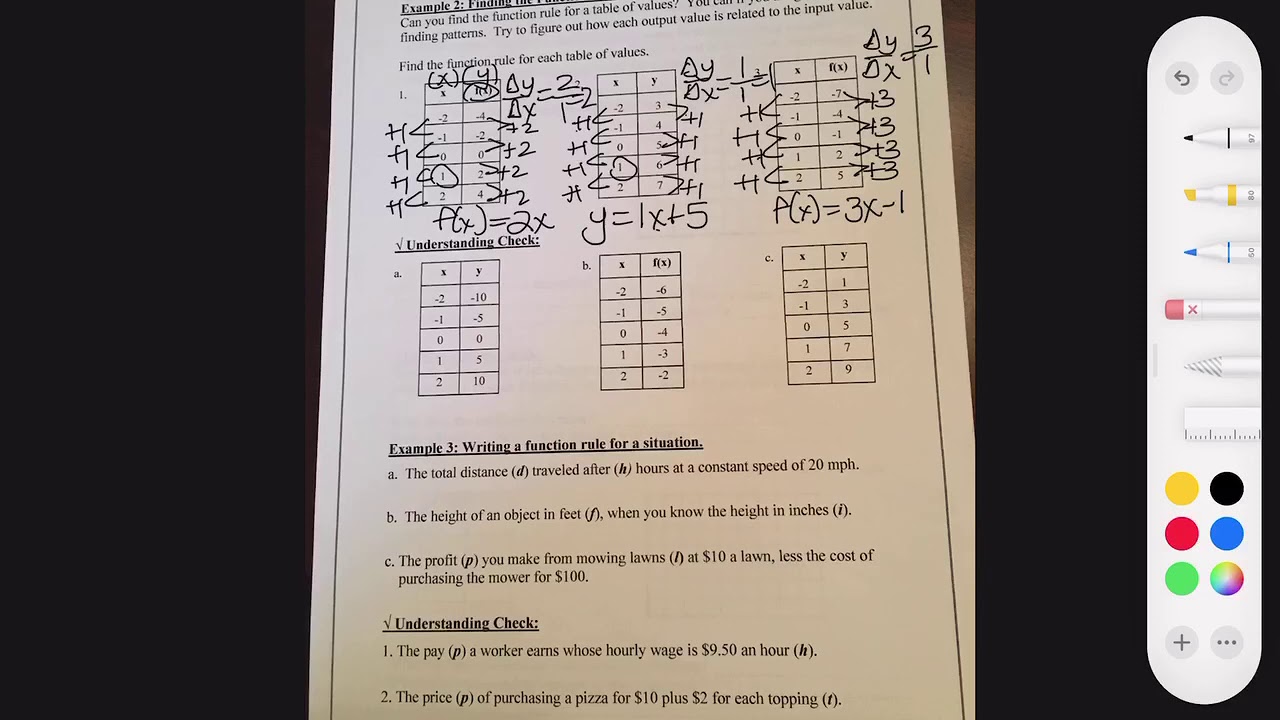 Example 2: Finding the
Can you find the function rule for a table of values? You can
finding patterns. Try to figure out how each output value is related to the input value.
Find the function rule for each table of values.
1.
(x) (y)
x f(x)
-2 -4
-1 -2
0 0
1 2
2 4
+1 +1 +1 +1
+2 +2 +2 +2
Δy/Δx = 2/1 = 2
f(x)=2x
x y
-2 3
-1 4
0 5
1 6
2 7
+1 +1 +1 +1
+1 +1 +1 +1
Δy/Δx = 1/1 =
y=1x+5
x f(x)
-2 -7
-1 -4
0 -1
1 2
2 5
+1 +1 +1 +1
+3 +3 +3 +3
Δy/Δx = 3/1
f(x)=3x-1
√ Understanding Check:
a.
x y
-2 -10
-1 -5
0 0
1 5
2 10
b.
x f(x)
-2 -6
-1 -5
0 -4
1 -3
2 -2
c.
x y
-2 1
-1 3
0 5
1 7
2 9
Example 3: Writing a function rule for a situation.
a. The total distance (d) traveled after (h) hours at a constant speed of 20 mph.
b. The height of an object in feet (f), when you know the height in inches (i).
c. The profit (p) you make from mowing lawns (l) at $10 a lawn, less the cost of
purchasing the mower for $100.
√ Understanding Check:
1. The pay (p) a worker earns whose hourly wage is $9.50 an hour (h).
2. The price (p) of purchasing a pizza for $10 plus $2 for each topping (t).
97
80
50